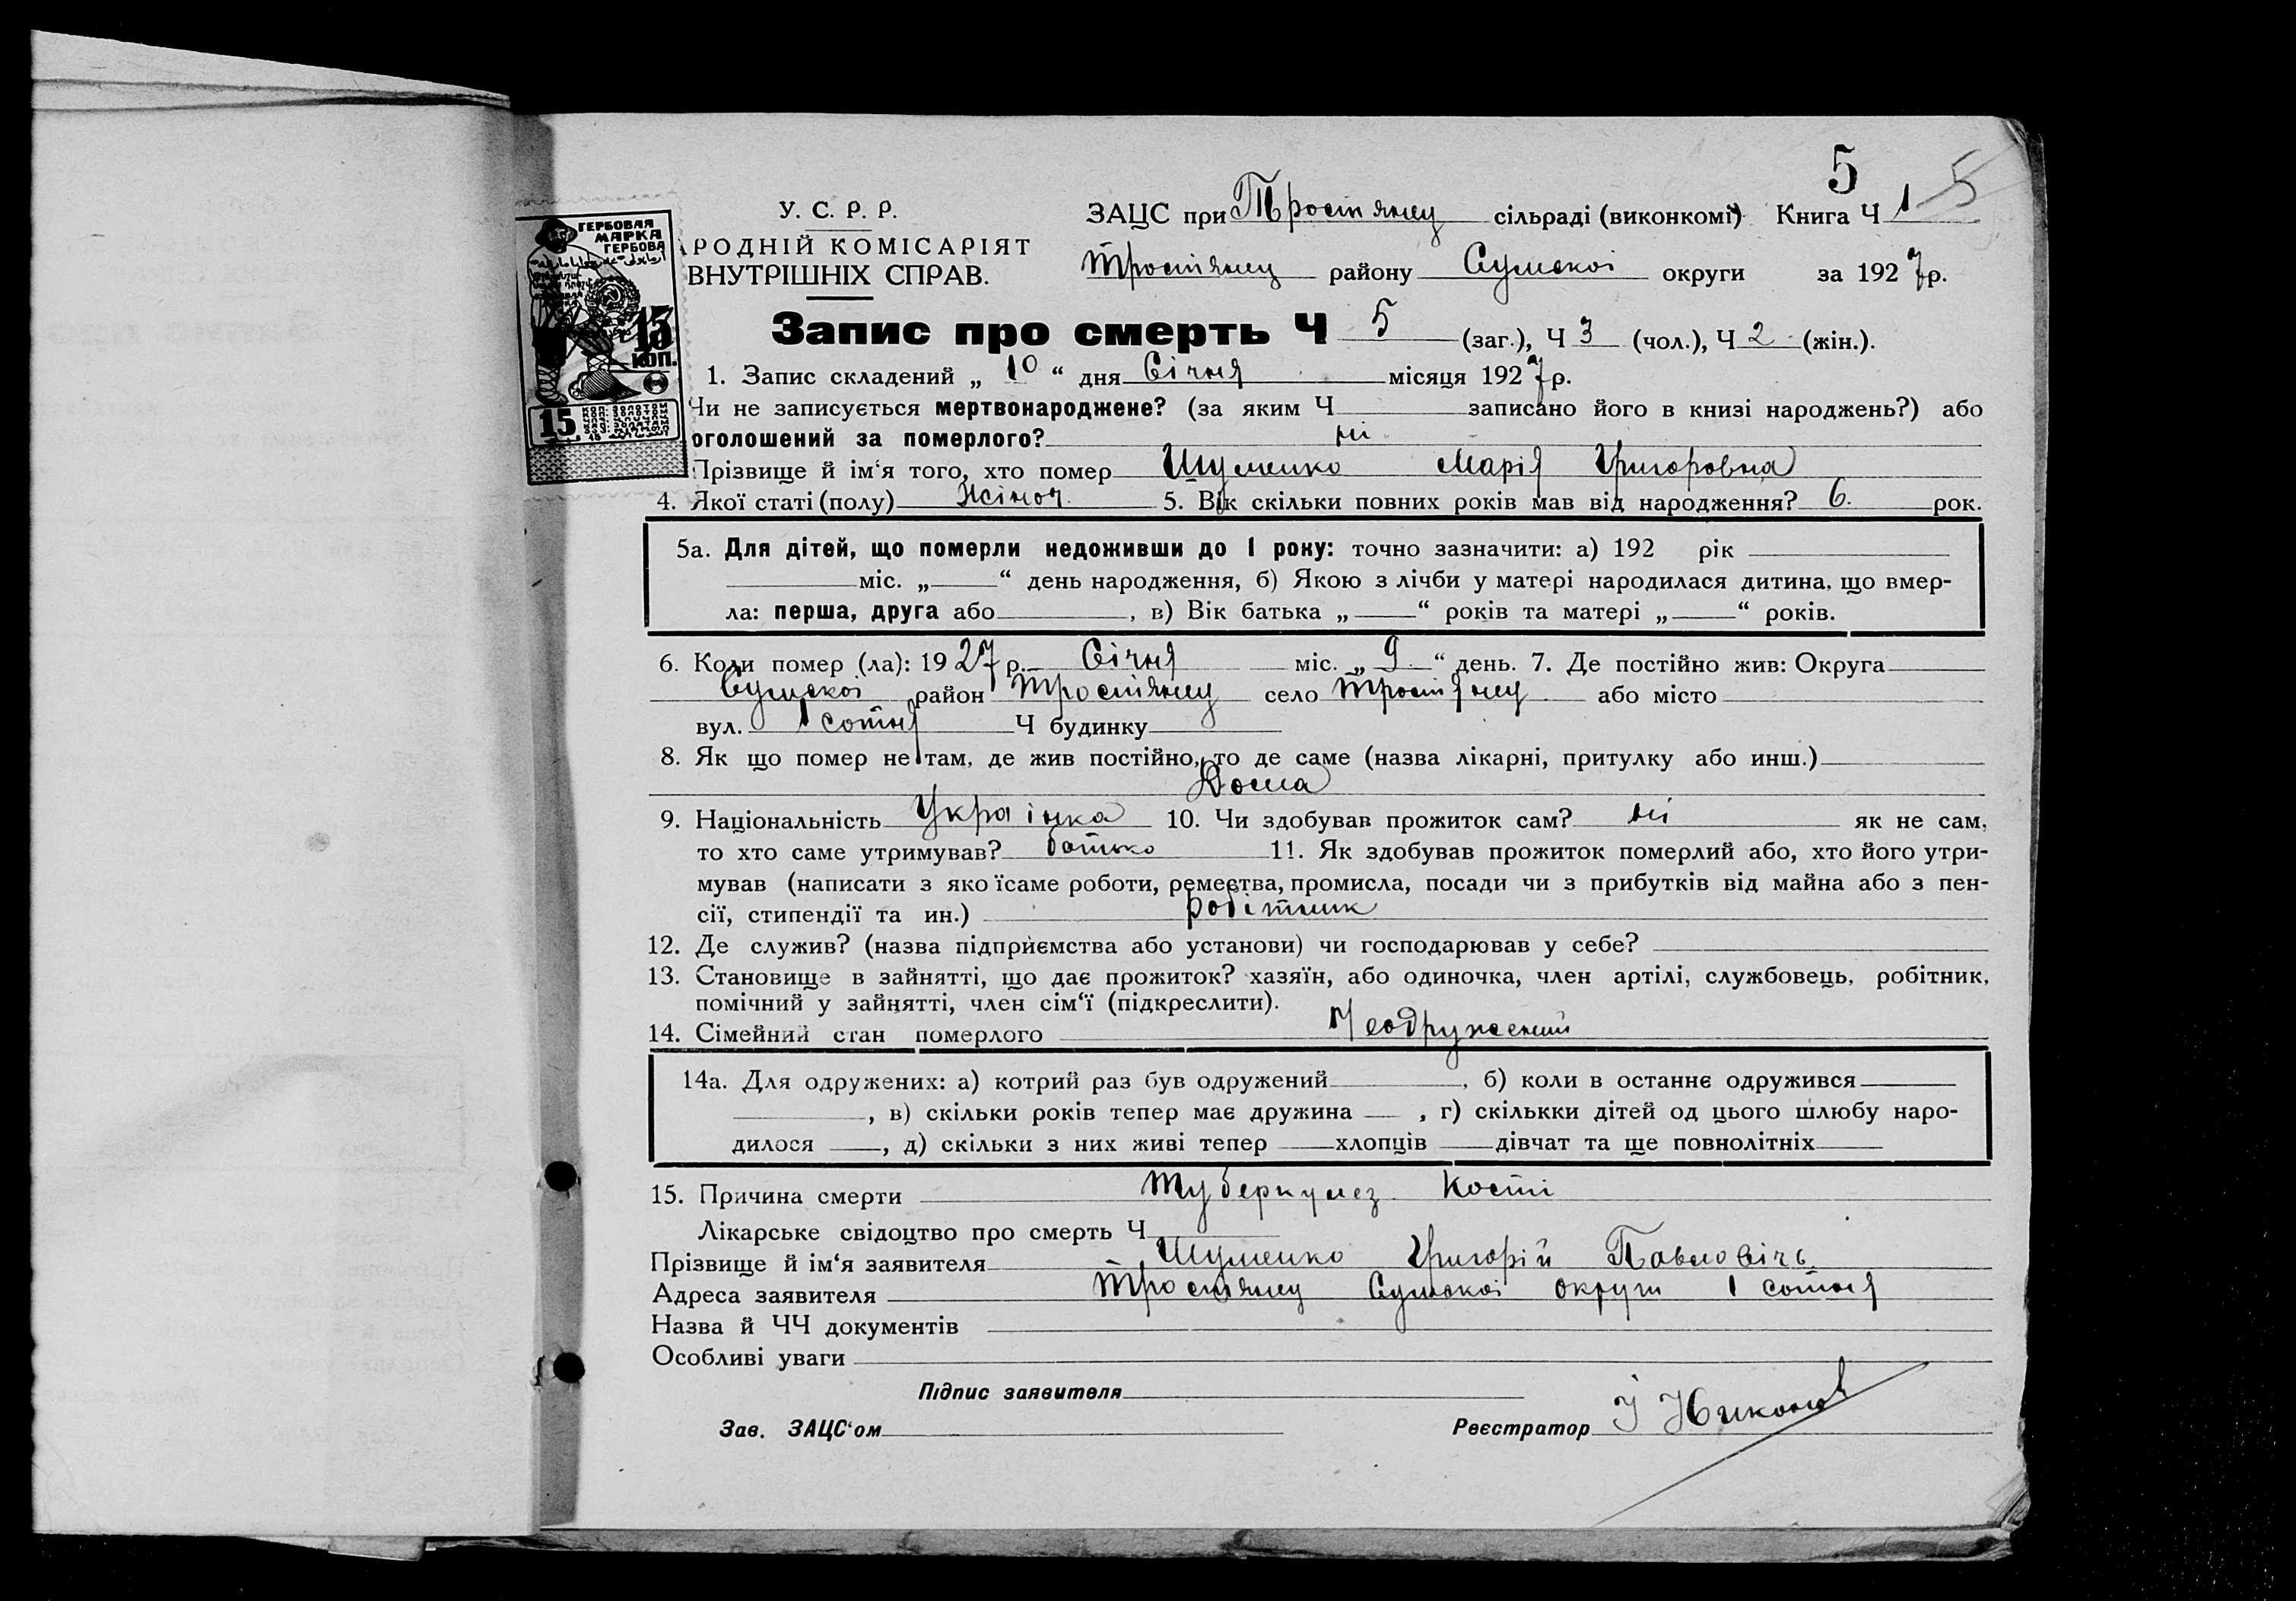 5
5
У. С. Р. Р.
АРОДНІЙ КОМІСАРІЯТ
ВНУТРІШНІХ СПРАВ.
ЗАЦС при Тростянец сільраді (виконкомі) Книга Ч 1
Тростянец району Сумскоі округи за 1927 р.
ГЕРБОВАЯ
МАРКА
ГЕРБОВА
15
КОП.
15
Запис про смерть Ч 5 (заг.), Ч 3 (чол.), Ч 2 (жін.).
1. Запис складений „ 10 “ дня Січня місяця 1927 р.
Чи не записується мертвонароджене? (за яким Ч записано його в книзі народжень?) або
оголошений за померлого? ні
Прізвище й ім‘я того, хто помер Шуменко Марія Григоровна
4. Якої статі (полу) Жіноч. 5. Вік скільки повних років мав від народження? 6. рок.
5а. Для дітей, що померли недоживши до 1 року: точно зазначити: а) 192 рік
міс. „ “ день народження, б) Якою з лічби у матері народилася дитина, що вмер-
ла: перша, друга або , в) Вік батька „ “ років та матері „ “ років.
6. Коли помер (ла): 1927 р. Січня міс. „ 9 “ день. 7. Де постійно жив: Округа
Сумскоі район Тростянец село Тростянец або місто
вул. 1 сотня Ч будинку
8. Як що помер не там, де жив постійно, то де саме (назва лікарні, притулку або инш.)
Дома
9. Національність Украінка 10. Чи здобував прожиток сам? ні як не сам,
то хто саме утримував? батько 11. Як здобував прожиток померлий або, хто його утри-
мував (написати з яко їсаме роботи, ремества, промисла, посади чи з прибутків від майна або з пен-
сії, стипендії та ин.) робітник
12. Де служив? (назва підприємства або установи) чи господарював у себе?
13. Становище в зайнятті, що дає прожиток? хазяїн, або одиночка, член артілі, службовець, робітник,
помічний у зайнятті, член сім‘ї (підкреслити).
14. Сімейний стан померлого Неодружений
14а. Для одружених: а) котрий раз був одружений , б) коли в останнє одружився
, в) скільки років тепер має дружина , г) скількки дітей од цього шлюбу наро-
дилося , д) скільки з них живі тепер хлопців дівчат та ще повнолітніх
15. Причина смерти Туберкулез Кості
Лікарське свідоцтво про смерть Ч
Прізвище й ім‘я заявителя Шуменко Григорій Павловічь
Адреса заявителя Тростянец Сумскоі округи 1 сотня
Назва й ЧЧ документів
Особливі уваги
Підпис заявителя
Зав. ЗАЦС‘ом Реєстратор